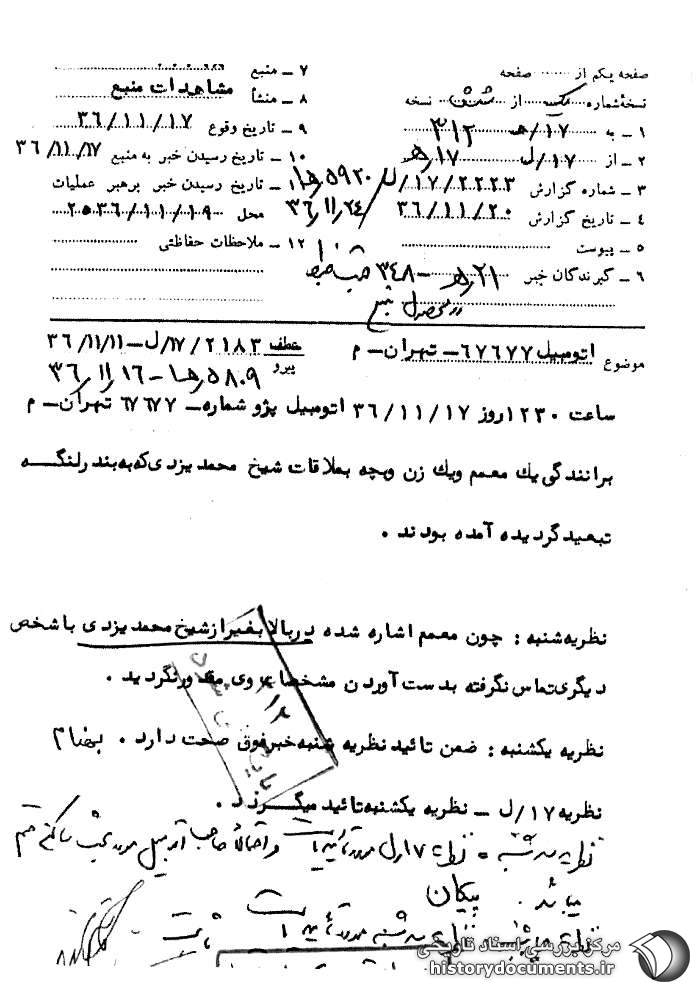 صفحه یکم از ...... صفحه
نسخه شماره یک از شش نسخه
۱ – به ۱۷/ هـ ۳۱۲
۲ – از ۱۷/ ل ۱۷/ هـ
۳ – شماره گزارش ۲۲۲۳/۱۷/ل ۵۹۲۰/ هـ
۴ – تاریخ گزارش ۳۶/۱۱/۲۰ ۳۶/۱۱/۲۴
۵ – پیوست
۶ – گیرندگان خبر ۳۴۸ –
۷ – منبع
۸ – منشأ مشاهدات منبع
۹ – تاریخ وقوع ۳۶/۱۱/۱۷
۱۰ – تاریخ رسیدن خبر به منبع ۳۶/۱۱/۱۷
۱۱ – تاریخ رسیدن خبر برهبر عملیات
محل ۲۵۳۶/۱۱/۱۹
۱۲ – ملاحظات حفاظتی
موضوع اتومبیل ۶۷۶۷۷ – تهران – م
عطف ۲۱۸۳ /۱۷/ل – ۳۶/۱۱/۱۱
پیرو ۵۸۰۹/ هـ – ۳۶/۱۱/۱۶
ساعت ۱۲۳۰ روز ۳۶/۱۱/۱۷ اتومبیل پژو شماره – ۶۷۶۷۷ تهران – م
برانندگی یك معمم ویك زن وبچه بملاقات شیخ محمد یزدی که به بند رلنگـــه
تبعید گردیده آمده بودند .
نظریه شنبه : چون معمم اشاره شده دربالا بغیر ازشیخ محمد یزدی باشخص
دیگری تماس نگرفته بدست آوردن مشخصات وی مقدورنگردید .
نظریه یکشنبه : ضمن تائید نظریه شنبه خبرفوق صحت دارد . بهنام
نظریه ۱۷/ل – نظریه یکشنبه تائید میگردد .
نظریه سه شنبه = نظریه ۱۷/ل مورد تأیید است و احتمالاً صاحب اتومبیل مورد بحث ساکن قم
میباشد . پیکان
نظریه چهارشنبه نظریه سه شنبه مورد تأیید است
مرکز بررسی اسناد تاریخی
historydocuments.ir